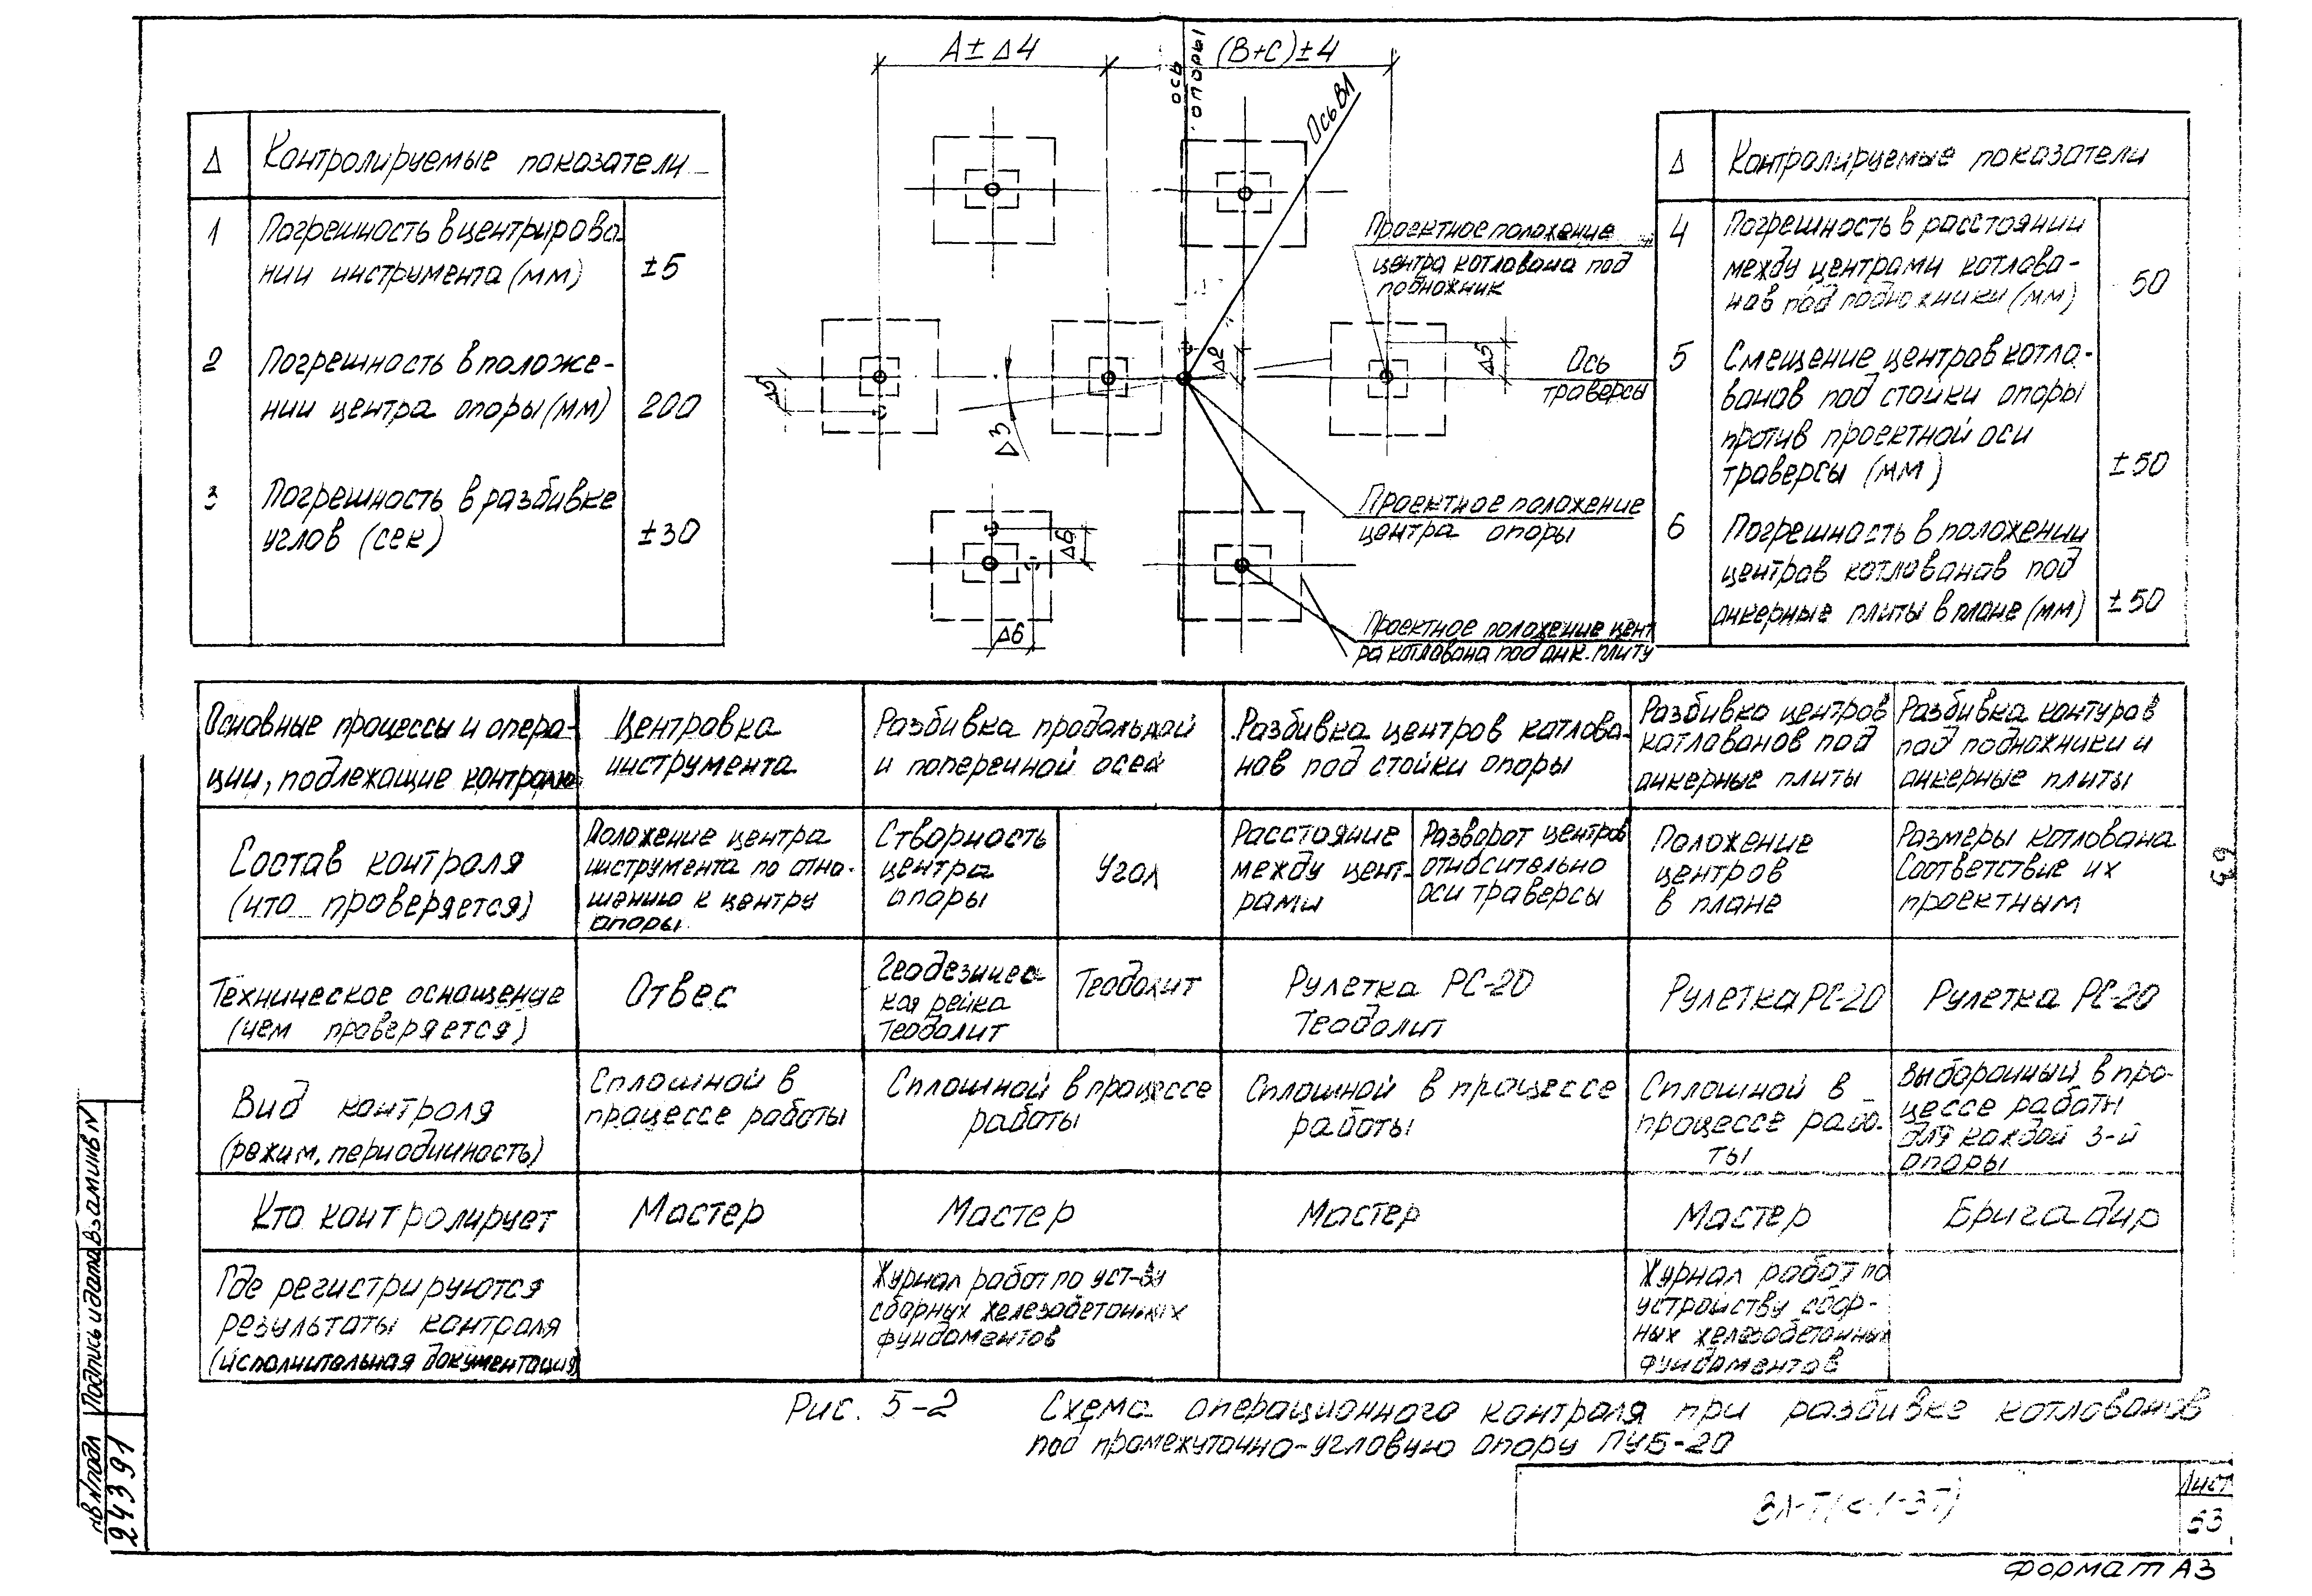 А ± Δ4
(В+С)±4
ось
опоры
Ось ВЛ
Δ Контролируемые показатели
1 Погрешность в центрирова
нии инструмента (мм) ±5
2 Погрешность в положе-
нии центра опоры (мм) 200
3 Погрешность в разбивке
углов (сек) ±30
Проектное положение
центра котлована под
подножник
Δ5
Δ3
Δ2
Δ5
Ось
траверсы
Проектное положение
центра опоры
Δ6
Δ6
Проектное положение цент
ра котлована под анк. плиту
Δ Контролируемые показатели
4 Погрешность в расстоянии
между центрами котлова-
нов под подножники (мм) 50
5 Смещение центров котло-
ванов под стойки опоры
против проектной оси
траверсы (мм) ±50
6 Погрешность в положении
центров котлованов под
анкерные плиты в плане (мм) ±50
Основные процессы и опера-
ции, подлежащие контролю
Центровка
инструмента
Разбивка продольной
и поперечной осей
Разбивка центров котлова-
нов под стойки опоры
Разбивка центров
котлованов под
анкерные плиты
Разбивка контуров
под подножники и
анкерные плиты
Состав контроля
(что проверяется)
Положение центра
инструмента по отно-
шению к центру
опоры.
Створность
центра
опоры
Угол
Расстояние
между цент-
рами
Разворот центров
относительно
оси траверсы
Положение
центров
в плане
Размеры котлована
Соответствие их
проектным
Техническое оснащение
(чем проверяется)
Отвес
Геодезичес-
кая рейка
Теодолит
Теодолит
Рулетка РС-20
Теодолит
Рулетка РС-20
Рулетка РС-20
Вид контроля
(режим, периодичность)
Сплошной в
процессе работы
Сплошной в процессе
работы
Сплошной в процессе
работы
Сплошной в
процессе рабо-
ты
Выборочный в про-
цессе работы
для каждой 3-й
опоры
Кто контролирует
Мастер
Мастер
Мастер
Мастер
Бригадир
Где регистрируются
результаты контроля
(исполнительная документация)
Журнал работ по уст-ву
сборных железобетонных
фундаментов
Журнал работ по
устройству сбор-
ных железобетонных
фундаментов
Рис. 5-2 Схема операционного контроля при разбивке котлованов
под промежуточно-угловую опору ПУБ-20
63
Взам инв N
Подпись и дата
инв N подл
24391
Лист
63
Формат А3